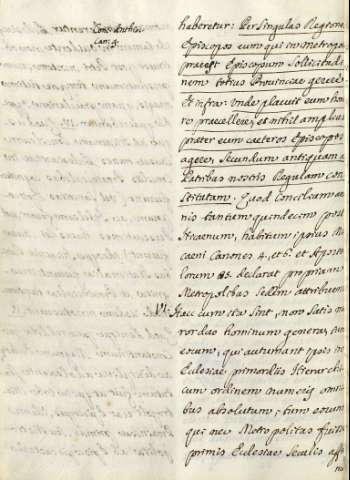 Conc. Antioc.
Can. 9.
haberetur: Per singulas Regiones
Episcopos eum qui in Metropoli
praeest Episcopum sollicitudi
nem totius Provinciae gerere
Et infra: Unde placuit eum hono
re praecellere, et nihil amplius
praeter eum caeteros Episcopos
agere, secundum antiquam a
Patribus nostris Regulam con
stitutam. Quod Concilium an
nis tantum quindecim post
Nicaenum, habitum ipsius Ni
caeni Canones 4. et 6. et Aposto
lorum 35. declarat propriam
Metropolibus Sedem attribuens
VI. Haec cum ita sint, non satis mi
ror duo hominum genera, tum
eorum, qui autumant ipsis in
Ecclesiae primordiis Hierarchi
cum ordinem numeris omni
bus absolutum; tum eorum
qui nec Metropolitas fuisse
primis Ecclesiae Seculis aff